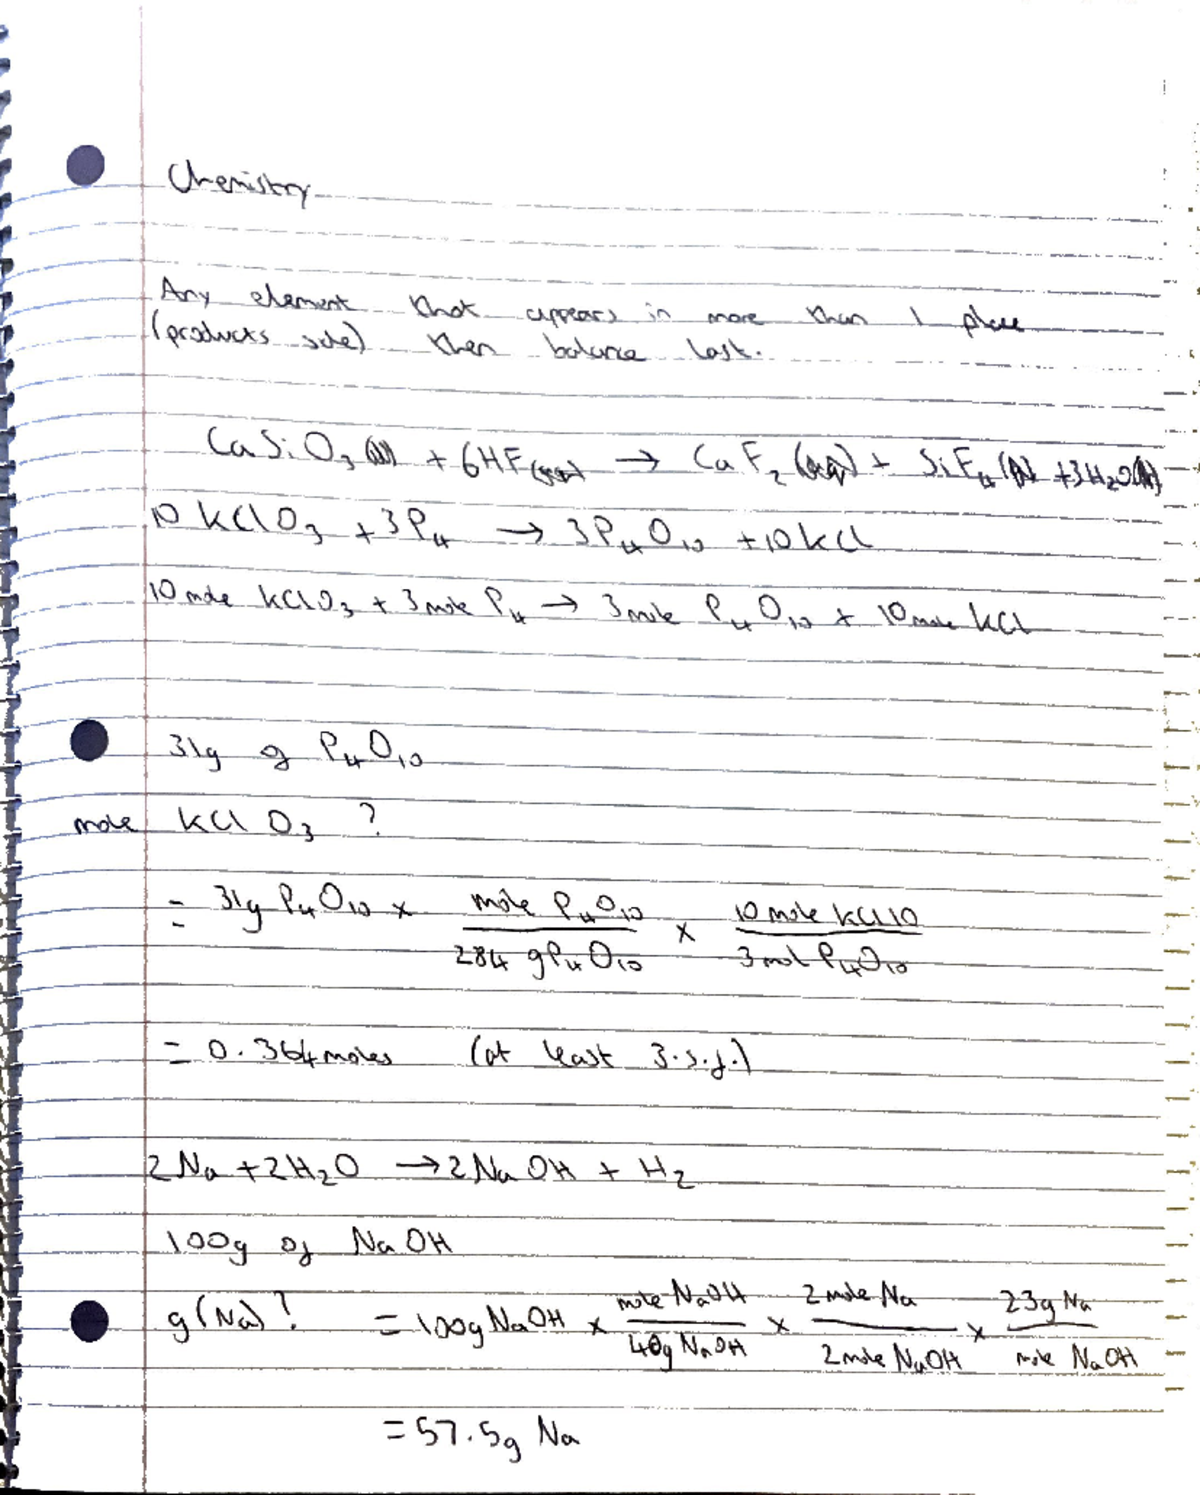 Chemistry
Any element that appears in more than 1 place
(products side) then balance last.
CaSiO₃ + 6HF → CaF₂ + SiF₄ + 3H₂O
10 KClO₃ + 3P₄ → 3P₄O₁₀ + 10KCl
10 mole KClO₃ + 3 mole P₄ → 3 mole P₄O₁₀ + 10 mole KCl
31g g P₄O₁₀
mole KClO₃ ?
= 31g P₄O₁₀ × mole P₄O₁₀ / 284 g P₄O₁₀ × 10 mole KCl10 / 3 mol P₄O₁₀
= 0.364 moles (at least 3.s.f.)
2Na + 2H₂O → 2NaOH + H₂
100g of NaOH
g(Na)? = 100g NaOH × mole NaOH / 40g NaOH × 2 mole Na / 2 mole NaOH × 23g Na / mole NaOH
= 57.5g Na